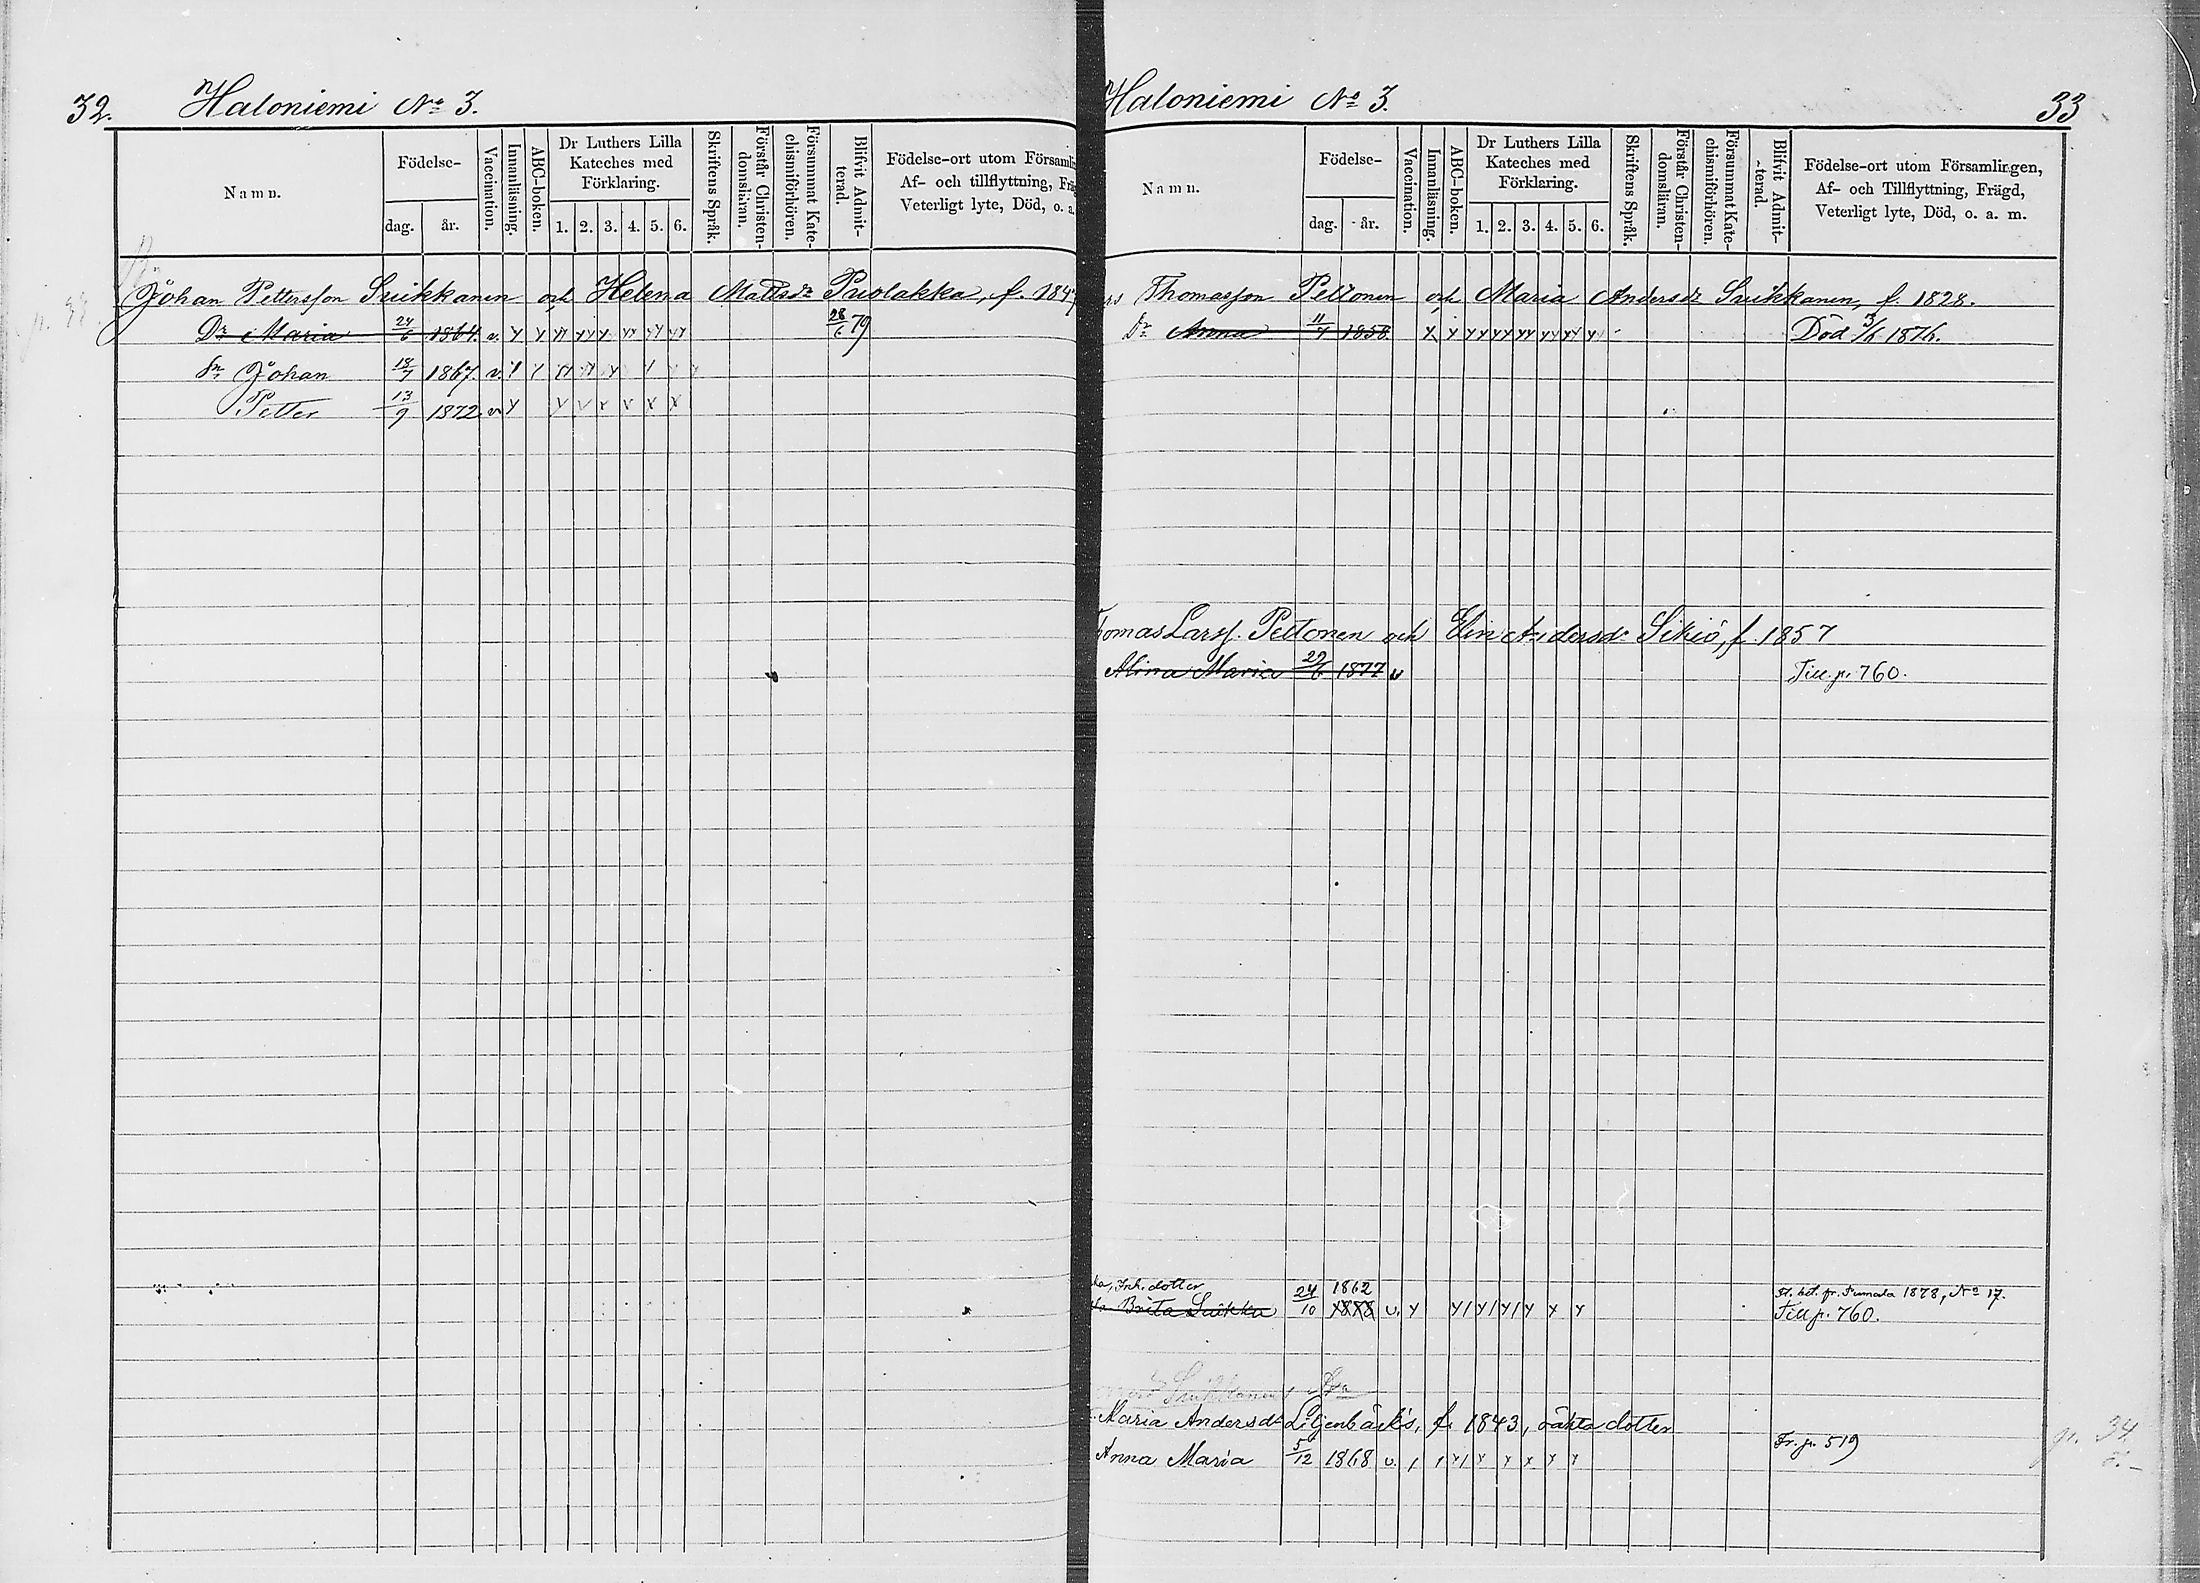 32. Haloniemi No 3.
Namn.
Födelse-
dag. år.
Vaccination.
Innanläsning.
ABC-boken.
Dr Luthers Lilla
Kateches med
Förklaring.
1. 2. 3. 4. 5. 6.
Skriftens Språk.
Förstår Christen-
domsläran.
Försummat Kate-
chismiförhören.
Blifvit Admit-
terad.
Födelse-ort utom Församlin
Af- och tillflyttning, Fräg
Veterligt lyte, Död, o. a.
Johan Pettersson Suikkanen och Helena Mattsdr Puolakka, f. 184
Dr Maria 24/6 1864. v. 28/6 79
Sn Johan 18/7 1867. v.
Petter 13/9 1872 v
Haloniemi No 3. 33
Namn.
Födelse-
dag. år.
Vaccination.
Innanläsning.
ABC-boken.
Dr Luthers Lilla
Kateches med
Förklaring.
1. 2. 3. 4. 5. 6.
Skriftens Språk.
Förstår Christen-
domsläran.
Försummat Kate-
chismiförhören.
Blifvit Admit-
terad.
Födelse-ort utom Församlingen,
Af- och Tillflyttning, Frägd,
Veterligt lyte, Död, o. a. m.
rs Thomasson Peltonen och Maria Andersdr Suikkanen, f. 1828.
Dr Anna 11/7 1858. Död 3/6 1876.
homas Larss. Peltonen och Elin Andersdr Sikiö, f. 1857
Alina Maria 29/6 1877 v Till p. 760.
ka, Inh. dotter 1862 Fl. bet. fr. Sumala 1878, No 17.
Brita Suikka 24/10 1878 v. Till p. 760.
Maria Andersdr Liljenbäck's, f. 1843, oäkta dotter
Anna Maria 5/12 1868 v. Fr. p. 519
p. 34